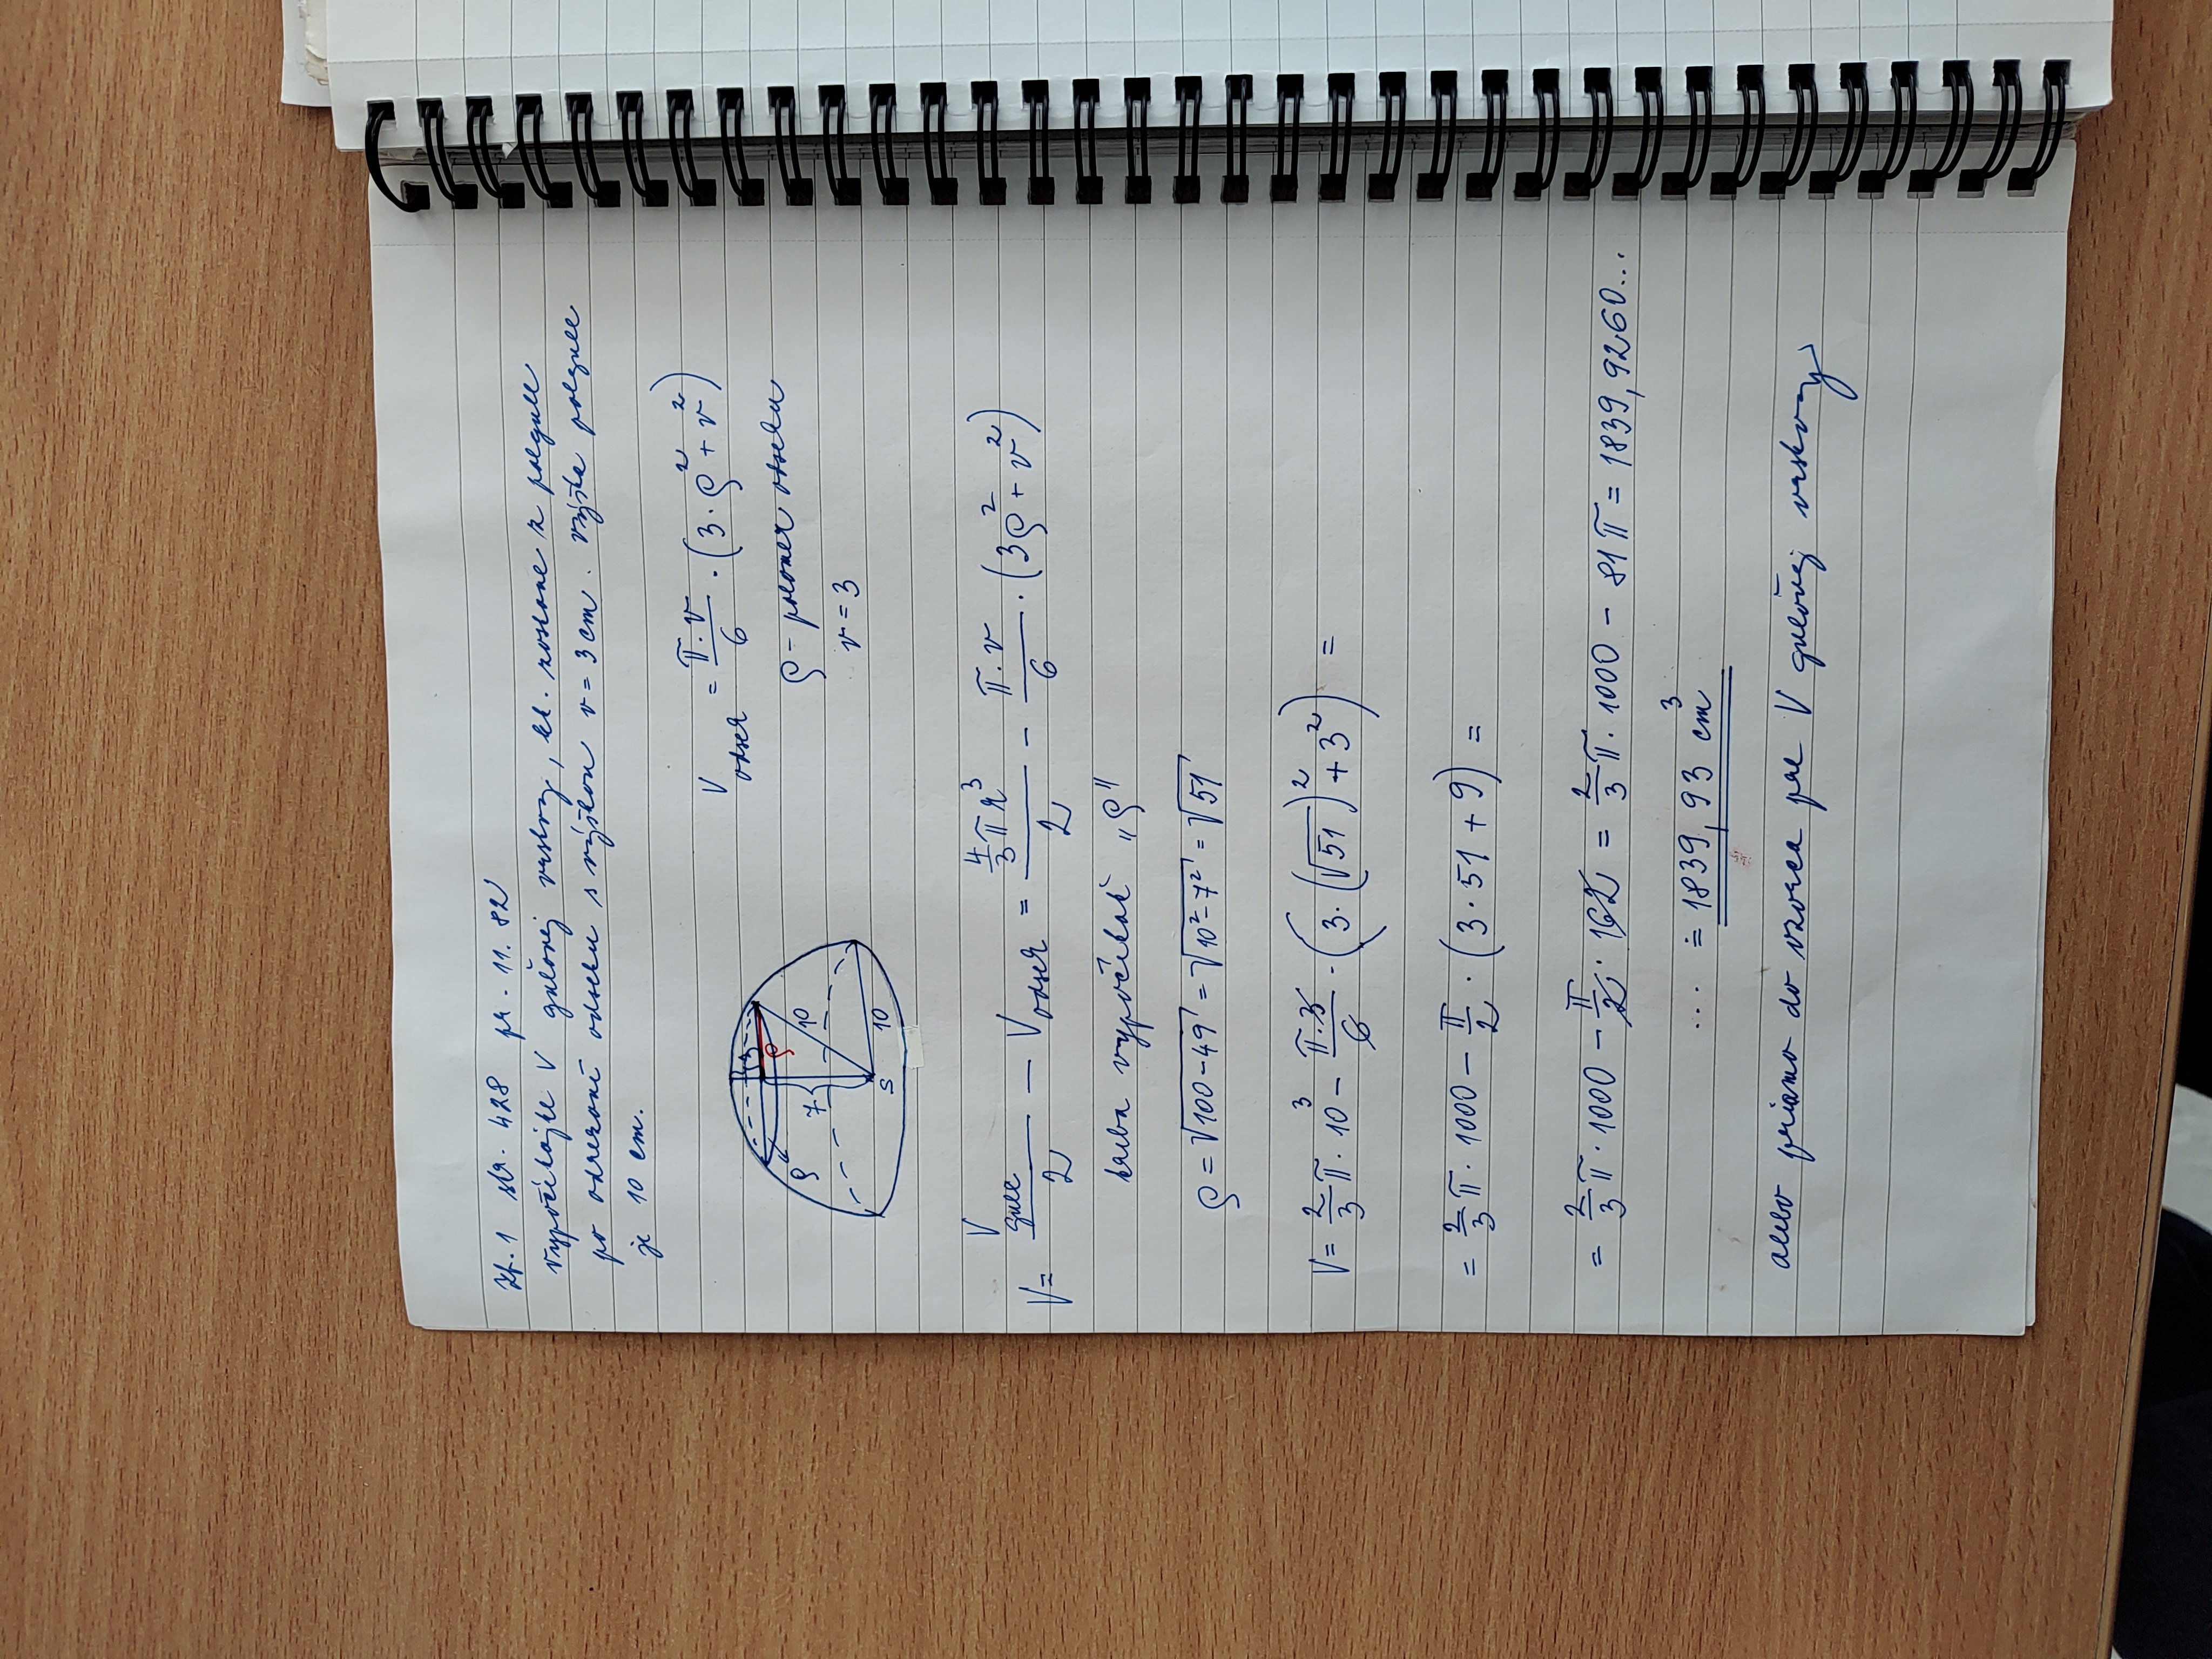 str. 428 pr. 11.82
Vypočítajte V guľovej vrstvy, kt. zostane z pologule
po odrezaní odseku s výškou v = 3 cm. výška pologule
je 10 cm.
V odsek = π·v/6 · (3·ρ² + v²)
ρ - polomer odseku
v = 3
3 ρ 10
ρ 7 10
S
V = V gule/2 — V odsek = 4/3 π r³/2 - π·v/6 · (3ρ² + v²)
treba vypočítať „ρ"
ρ = √100-49 = √10²-7² = √51
V = 2/3 π · 10³ - π·3/6 · (3·(√51)² + 3²) =
= 2/3 π · 1000 - π/2 · (3·51 + 9) =
= 2/3 π · 1000 - π/2 · 162 = 2/3 π · 1000 - 81π = 1839,9260...
... ≐ 1839,93 cm³
alebo priamo do vzorca pre V guľovej vrstvy